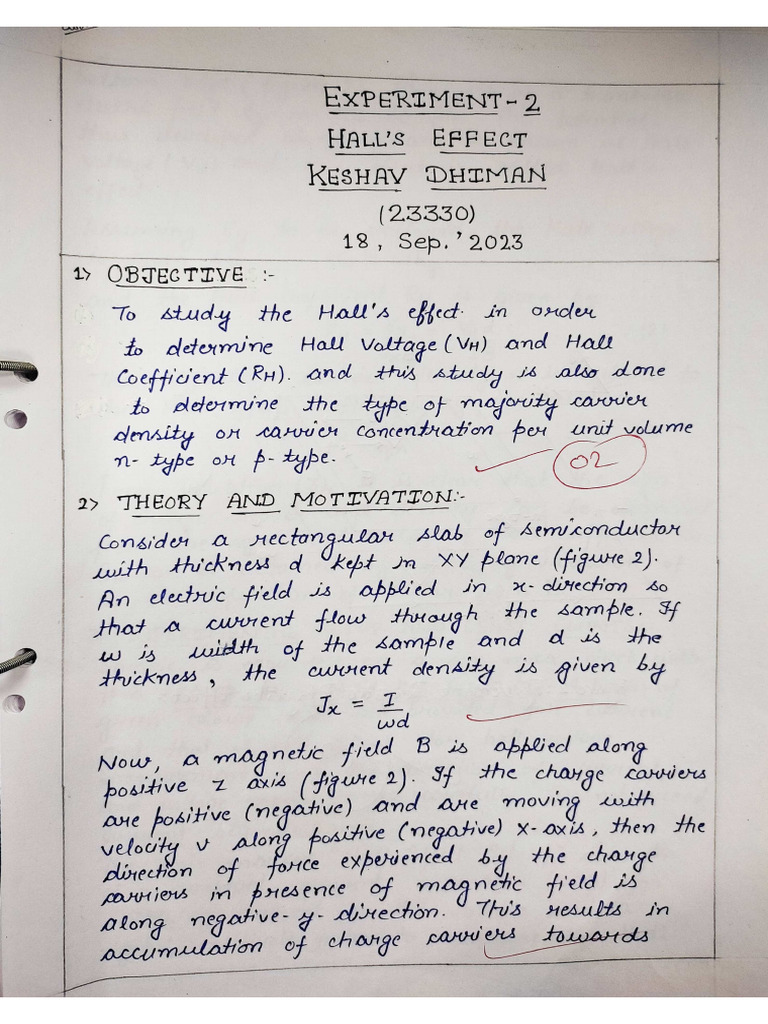 EXPERIMENT-2
HALL'S EFFECT
KESHAV DHIMAN
(23330)
18, Sep.'2023
1> OBJECTIVE :-
To study the Hall's effect in order
to determine Hall Voltage (VH) and Hall
Coefficient (RH). and this study is also done
to determine the type of majority carrier
density or carrier concentration per unit volume
n-type or p-type.
02
2> THEORY AND MOTIVATION:-
Consider a rectangular slab of semiconductor
with thickness d kept in XY plane (figure 2).
An electric field is applied in x-direction so
that a current flow through the sample. If
w is width of the sample and d is the
thickness, the current density is given by
Jx = I/wd
Now, a magnetic field B is applied along
positive z axis (figure 2). If the charge carriers
are positive (negative) and are moving with
velocity v along positive (negative) x-axis, then the
direction of force experienced by the charge
carriers in presence of magnetic field is
along negative-y-direction. This results in
accumulation of charge carriers towards